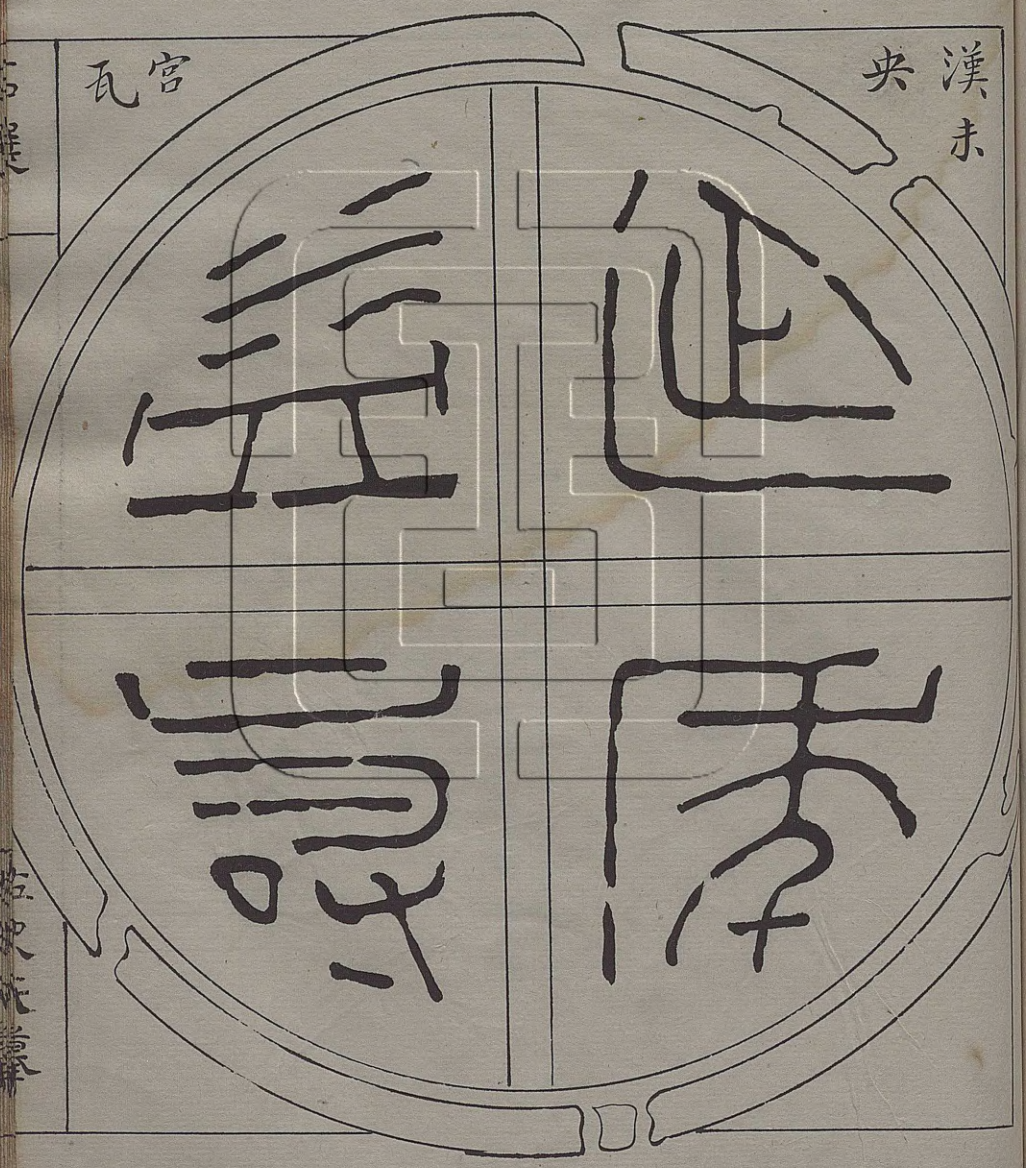 漢未
央
宮
瓦
延年
益壽